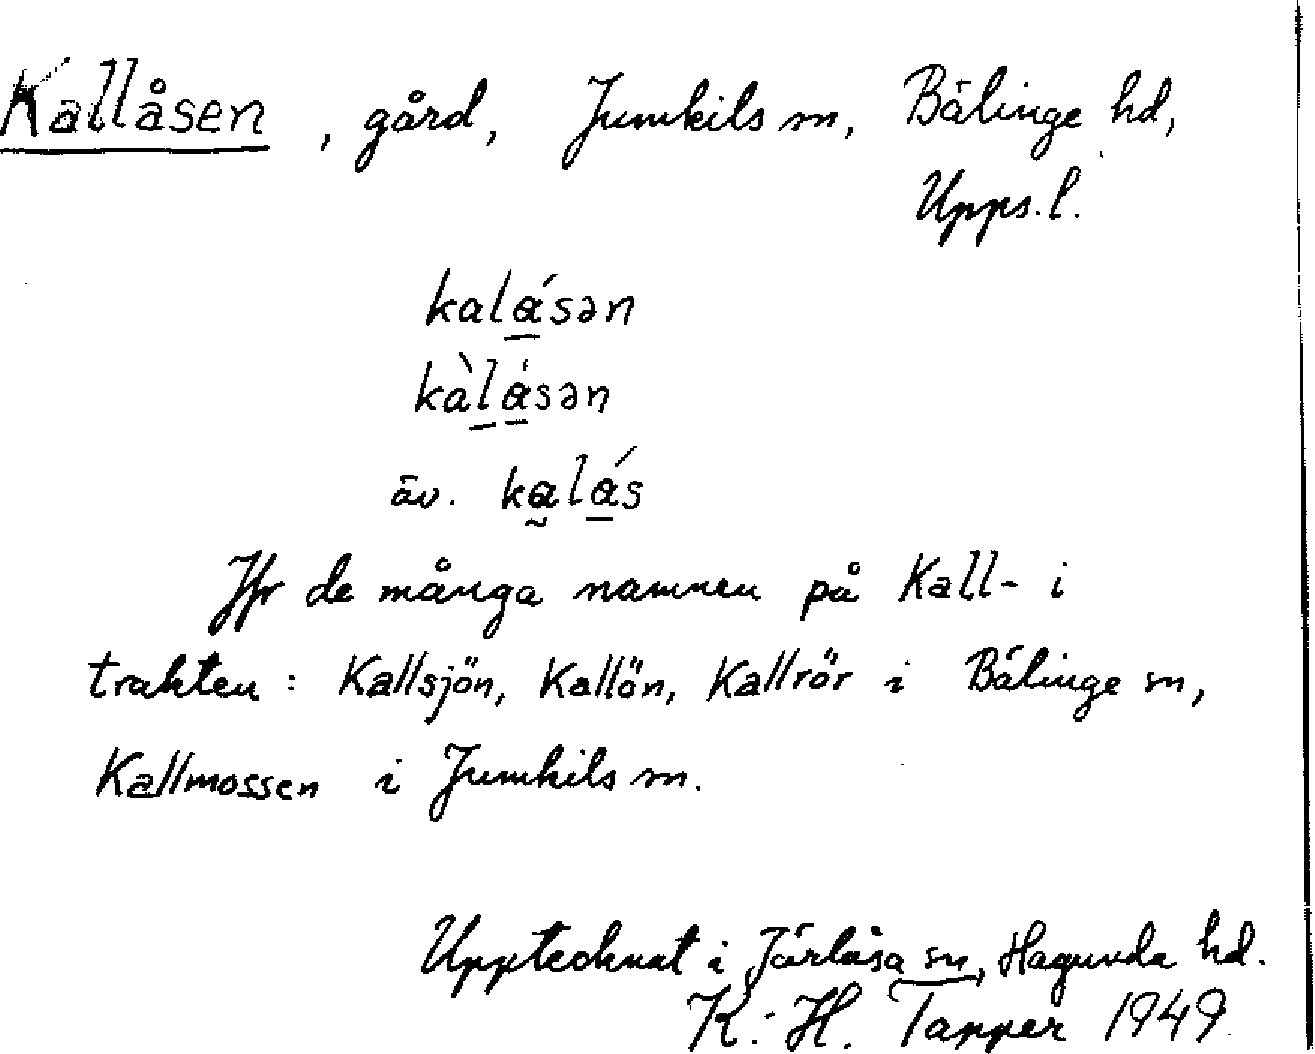 Kallåsen, gård, Jumkils sn, Bälinge hd,
Upps. l.
kalásən
kàlásən
äv. kalás
Jfr de många namnen på Kall- i
trakten: Kallsjön, Kallön, Kallrör i Bälinge sn,
Kallmossen i Jumkils sn.
Upptecknat i Järlåsa sn, Hagunda hd.
K.-H. Tapper 1949.